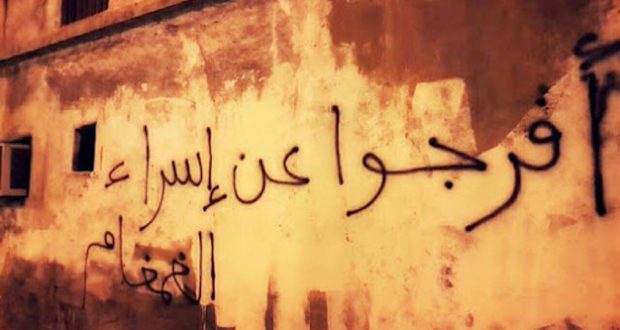 أفرجوا عن إسراء
الغمغام